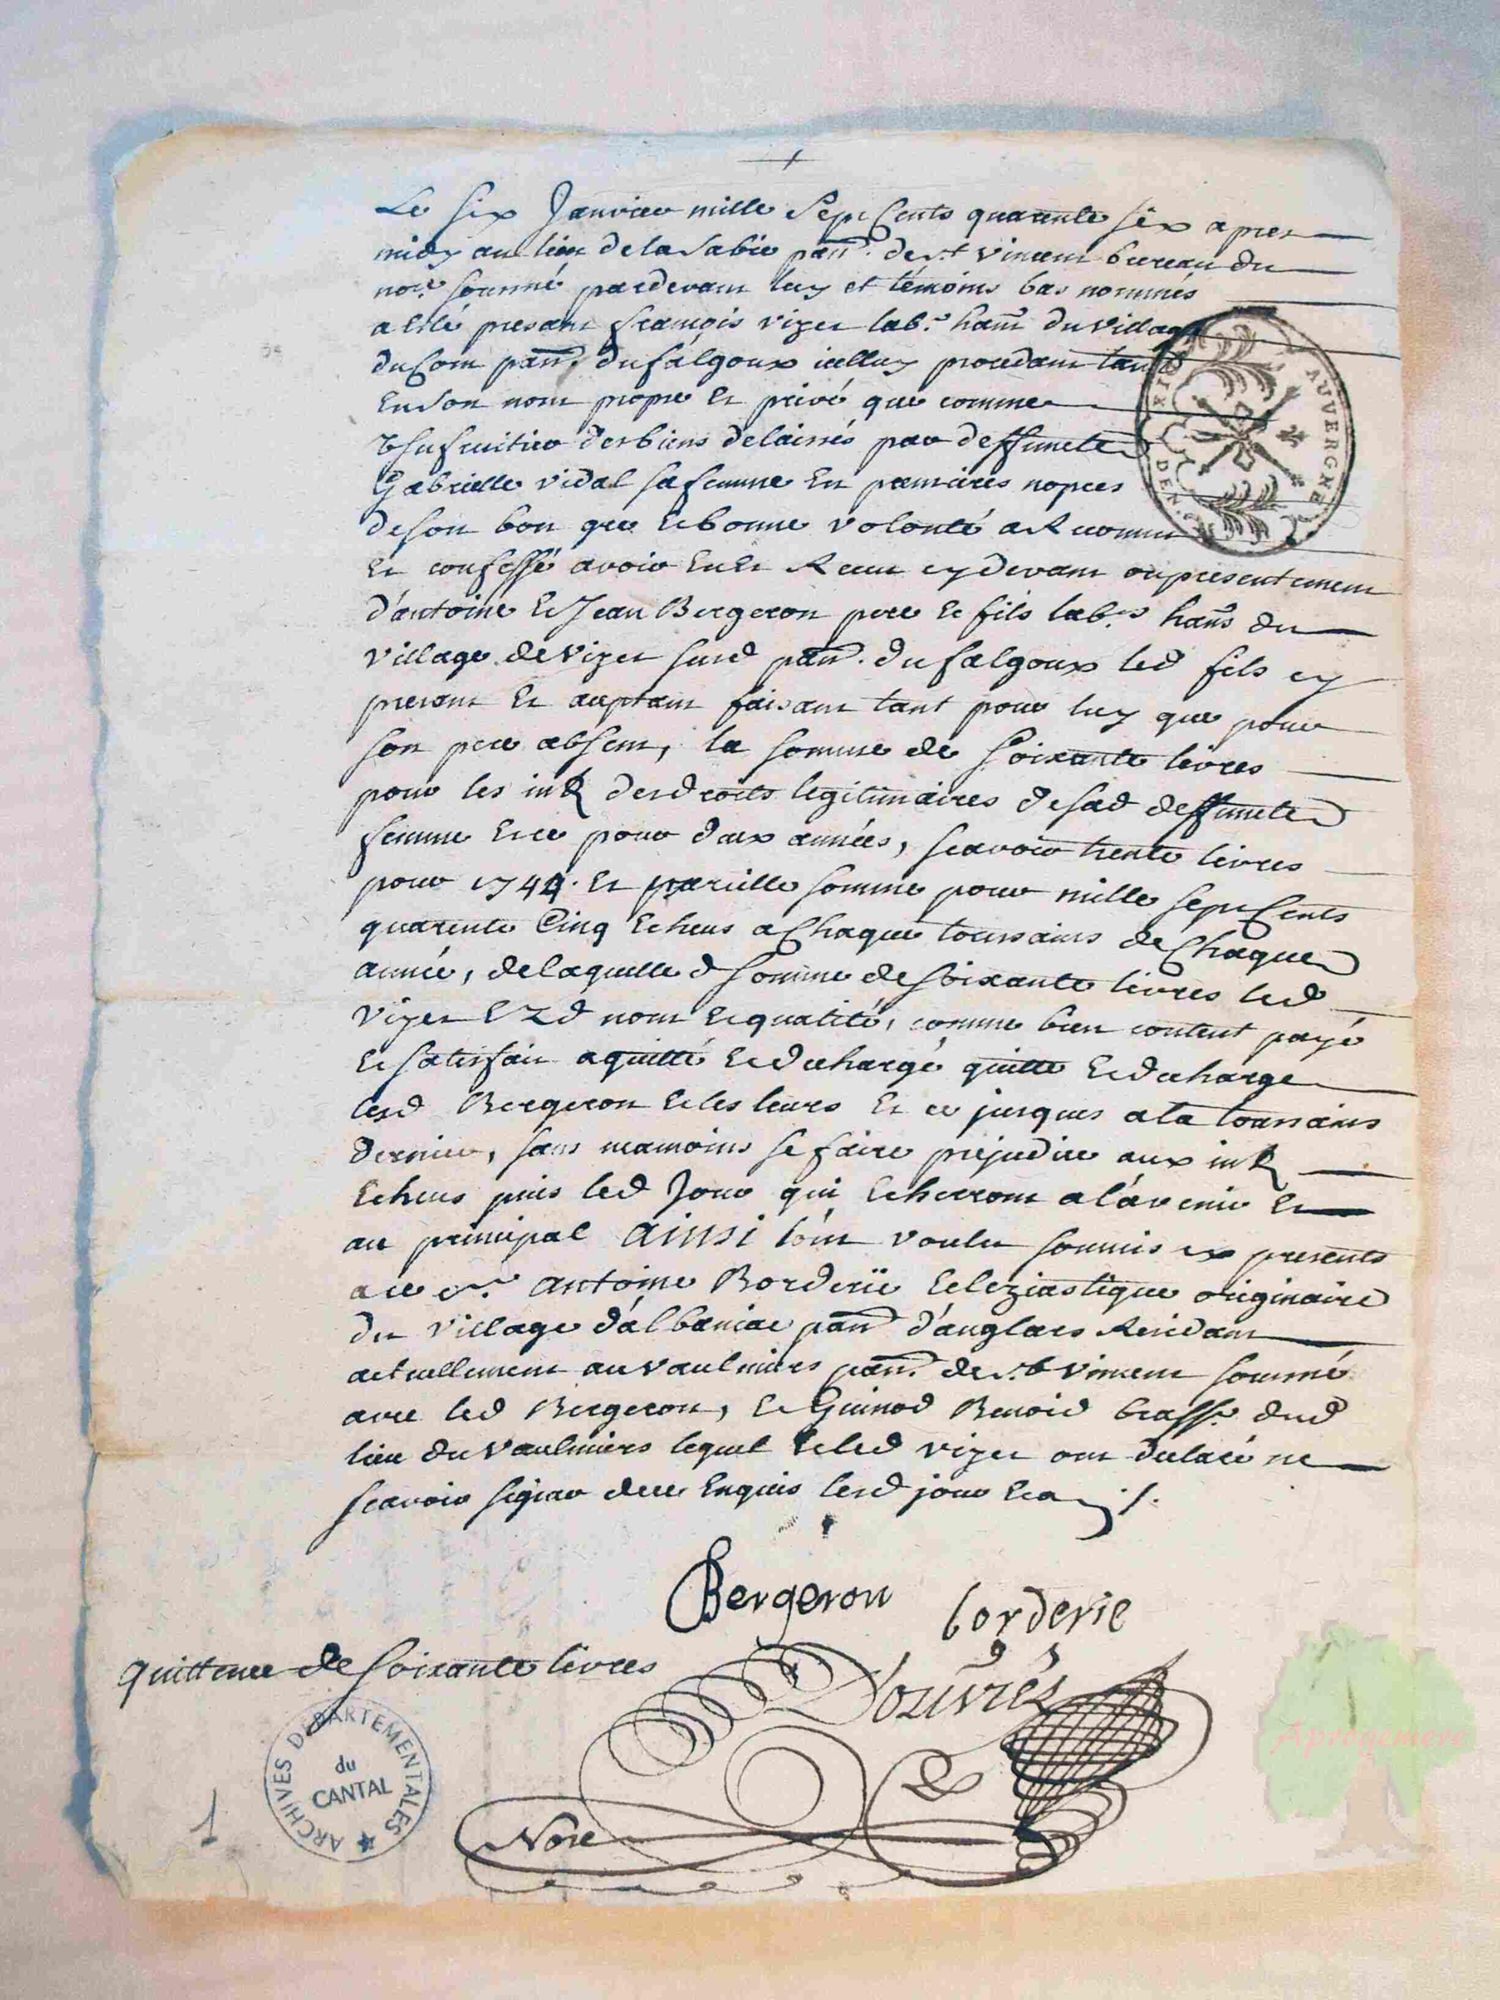 Le six Janvier mille Sept Cents quarente six apres
midy au lieu de la Sabie parr. de st vincent bureau du
nore. soussné pardevant luy et témoins bas nommés
a esté presant françois vizet lab.r hant du village
du Coin parr. du falgoux icelluy procedant tant
En son nom propre Et privé que comme
Usufruitier des biens delaissés par deffuncte
Gabrielle vidal sa femme En premieres nopces
de son bon gre Et bonne volonté a Reconnu
Et confessé avoir Eu Et Receu cy devant ou presentement
d'antoine Et Jean Bergeron pere Et fils lab.rs hants du
village de vizet susd parr. du falgoux led fils cy
presant Et acceptant faisant tant pour luy que pour
son pere absent, la somme de soixante livres
pour les int des droits legitimaires de sad deffuncte
femme Et ce pour deux années, scavoir trente livres
pour 1744. Et pareille somme pour mille sept Cents
quarente Cinq Echeus a Chaque toussains de Chaque
année, de laquelle d somme de soixante livres led
vizet Ezd nom Et qualité, comme bien content payé
Et satisfait a quitté Et decharge quitte Et decharge
lesd Bergeron Et les leurs Et ce jusques a la toussains
dernier, sans neamoins se faire prejudice aux int
Echeus puis led Jour qui Echerront a l'avenir Et
au principal AINSI l'ont voulu soumis ex presents
a ce sr. Antoine Borderie Ecleziastique originaire
du village d'albaniac parr d'anglars Residant
actuellement au vaulmiers parr. de st vincent soussné
avec led Bergeron, Et Guinod Benoid brass.r dud
lieu du vaulmiers lequel Et led vizet ont declaré ne
scavoir signer de ce Enquis lesd jour Et an
Bergeron
borderie
D'ouvrés
quittence de soixante livres
Nore
AUVERGNE
DEN.
ARCHIVES DÉPARTEMENTALES
du
CANTAL
1
Aprogemere